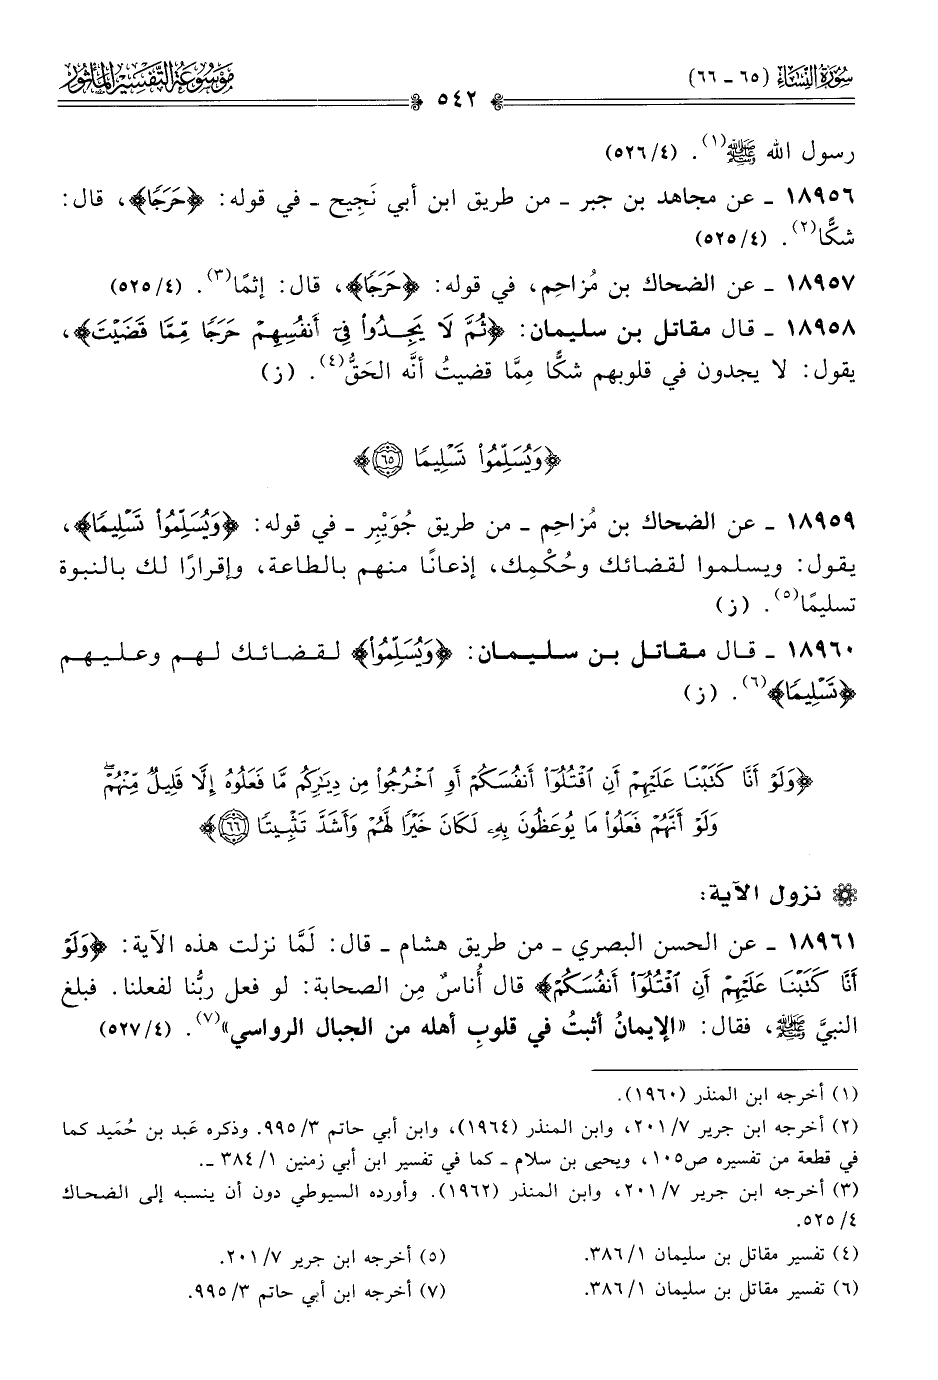 سورة النساء (٦٥ - ٦٦)
٥٤٢
موسوعة التفسير المأثور
رسول الله ﷺ(١). (٥٢٦/٤)
١٨٩٥٦ - عن مجاهد بن جبر - من طريق ابن أبي نَجِيح - في قوله: ﴿حَرَجًا﴾، قال:
شكًّا(٢). (٥٢٥/٤)
١٨٩٥٧ - عن الضحاك بن مُزاحِم، في قوله: ﴿حَرَجًا﴾، قال: إثمًا(٣). (٥٢٥/٤)
١٨٩٥٨ - قال مقاتل بن سليمان: ﴿ثُمَّ لَا يَجِدُوا۟ فِىٓ أَنفُسِهِمْ حَرَجًا مِّمَّا قَضَيْتَ﴾،
يقول: لا يجدون في قلوبهم شكًّا مِمَّا قضيتُ أنَّه الحَقُّ(٤). (ز)
﴿وَيُسَلِّمُوا۟ تَسْلِيمًا ٦٥﴾
١٨٩٥٩ - عن الضحاك بن مُزاحِم - من طريق جُوَيْبِر - في قوله: ﴿وَيُسَلِّمُوا۟ تَسْلِيمًا﴾،
يقول: ويسلموا لقضائك وحُكْمِك، إذعانًا منهم بالطاعة، وإقرارًا لك بالنبوة
تسليمًا(٥). (ز)
١٨٩٦٠ - قال مقاتل بن سليمان: ﴿وَيُسَلِّمُوا۟﴾ لقضائك لهم وعليهم
﴿تَسْلِيمًا﴾(٦). (ز)
﴿وَلَوْ أَنَّا كَتَبْنَا عَلَيْهِمْ أَنِ ٱقْتُلُوٓا۟ أَنفُسَكُمْ أَوِ ٱخْرُجُوا۟ مِن دِيَٰرِكُم مَّا فَعَلُوهُ إِلَّا قَلِيلٌ مِّنْهُمْ ۖ
وَلَوْ أَنَّهُمْ فَعَلُوا۟ مَا يُوعَظُونَ بِهِۦ لَكَانَ خَيْرًا لَّهُمْ وَأَشَدَّ تَثْبِيتًا ٦٦﴾
نزول الآية:
١٨٩٦١ - عن الحسن البصري - من طريق هشام - قال: لَمَّا نزلت هذه الآية: ﴿وَلَوْ
أَنَّا كَتَبْنَا عَلَيْهِمْ أَنِ ٱقْتُلُوٓا۟ أَنفُسَكُمْ﴾ قال أُناسٌ مِن الصحابة: لو فعل ربُّنا لفعلنا. فبلغ
النبيَّ ﷺ، فقال: «الإيمانُ أثبتُ في قلوبِ أهله من الجبال الرواسي»(٧). (٥٢٧/٤)
(١) أخرجه ابن المنذر (١٩٦٠).
(٢) أخرجه ابن جرير ٢٠١/٧، وابن المنذر (١٩٦٤)، وابن أبي حاتم ٩٩٥/٣. وذكره عَبد بن حُمَيد كما
في قطعة من تفسيره ص١٠٥، ويحيى بن سلام - كما في تفسير ابن أبي زمنين ٣٨٤/١ -.
(٣) أخرجه ابن جرير ٢٠١/٧، وابن المنذر (١٩٦٢). وأورده السيوطي دون أن ينسبه إلى الضحاك
٥٢٥/٤.
(٤) تفسير مقاتل بن سليمان ٣٨٦/١. (٥) أخرجه ابن جرير ٢٠١/٧.
(٦) تفسير مقاتل بن سليمان ٣٨٦/١. (٧) أخرجه ابن أبي حاتم ٩٩٥/٣.